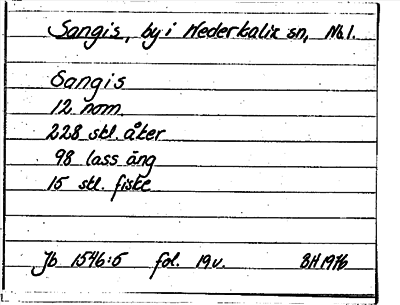 Sangis, by i Nederkalix sn, Nb l.
Sangis
12 nom.
228 skl. åker
98 lass äng
15 skl. fiske
Jb 1546:5 fol. 19v. BH 1976